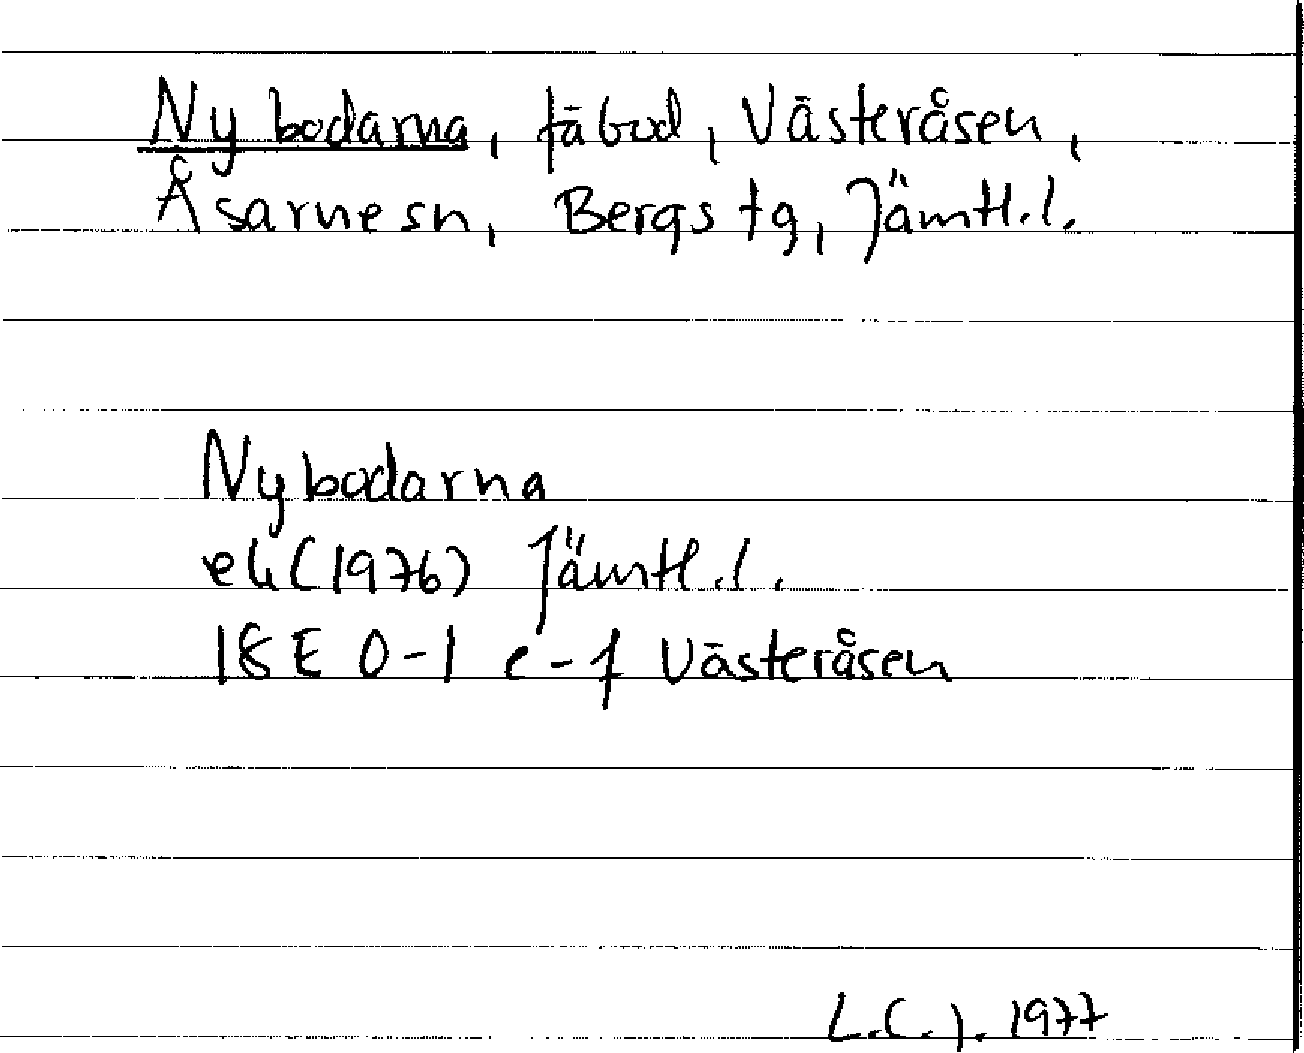 Nybodarna, fäbod, Västeråsen,
Åsarne sn, Bergs tg, Jämtl.l.
Nybodarna
ek (1976) Jämtl.l.
18E 0-1 e-f Västeråsen
L.C.J. 1977